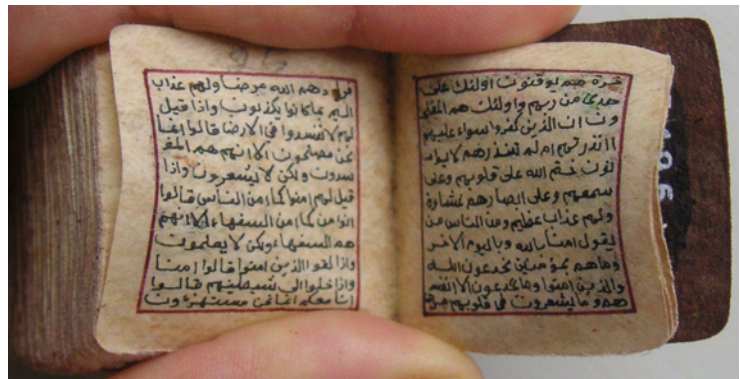 خرة هم يوقنون اولئك على
هدى من ربهم واولئك هم المفلح
ون ان الذين كفروا سواء عليهم
اانذرتهم ام لم تنذرهم لا يؤم
نون ختم الله على قلوبهم وعلى
سمعهم وعلى ابصارهم غشاوة
ولهم عذاب عظيم ومن الناس من
يقول امنا بالله وباليوم الاخر
وما هم بمؤمنين يخدعون الله
والذين امنوا وما يخدعون الا انفس
هم وما يشعرون في قلوبهم مرض
فزادهم الله مرضا ولهم عذاب
اليم بما كانوا يكذبون واذا قيل
لهم لا تفسدوا في الارض قالوا انما
نحن مصلحون الا انهم هم المف
سدون ولكن لا يشعرون واذا
قيل لهم امنوا كما امن الناس قالوا
انؤمن كما امن السفهاء الا انهم
هم السفهاء ولكن لا يعلمون
واذا لقوا الذين امنوا قالوا امنا
واذا خلوا الى شيطينهم قالوا
انا معكم انما نحن مستهزءون